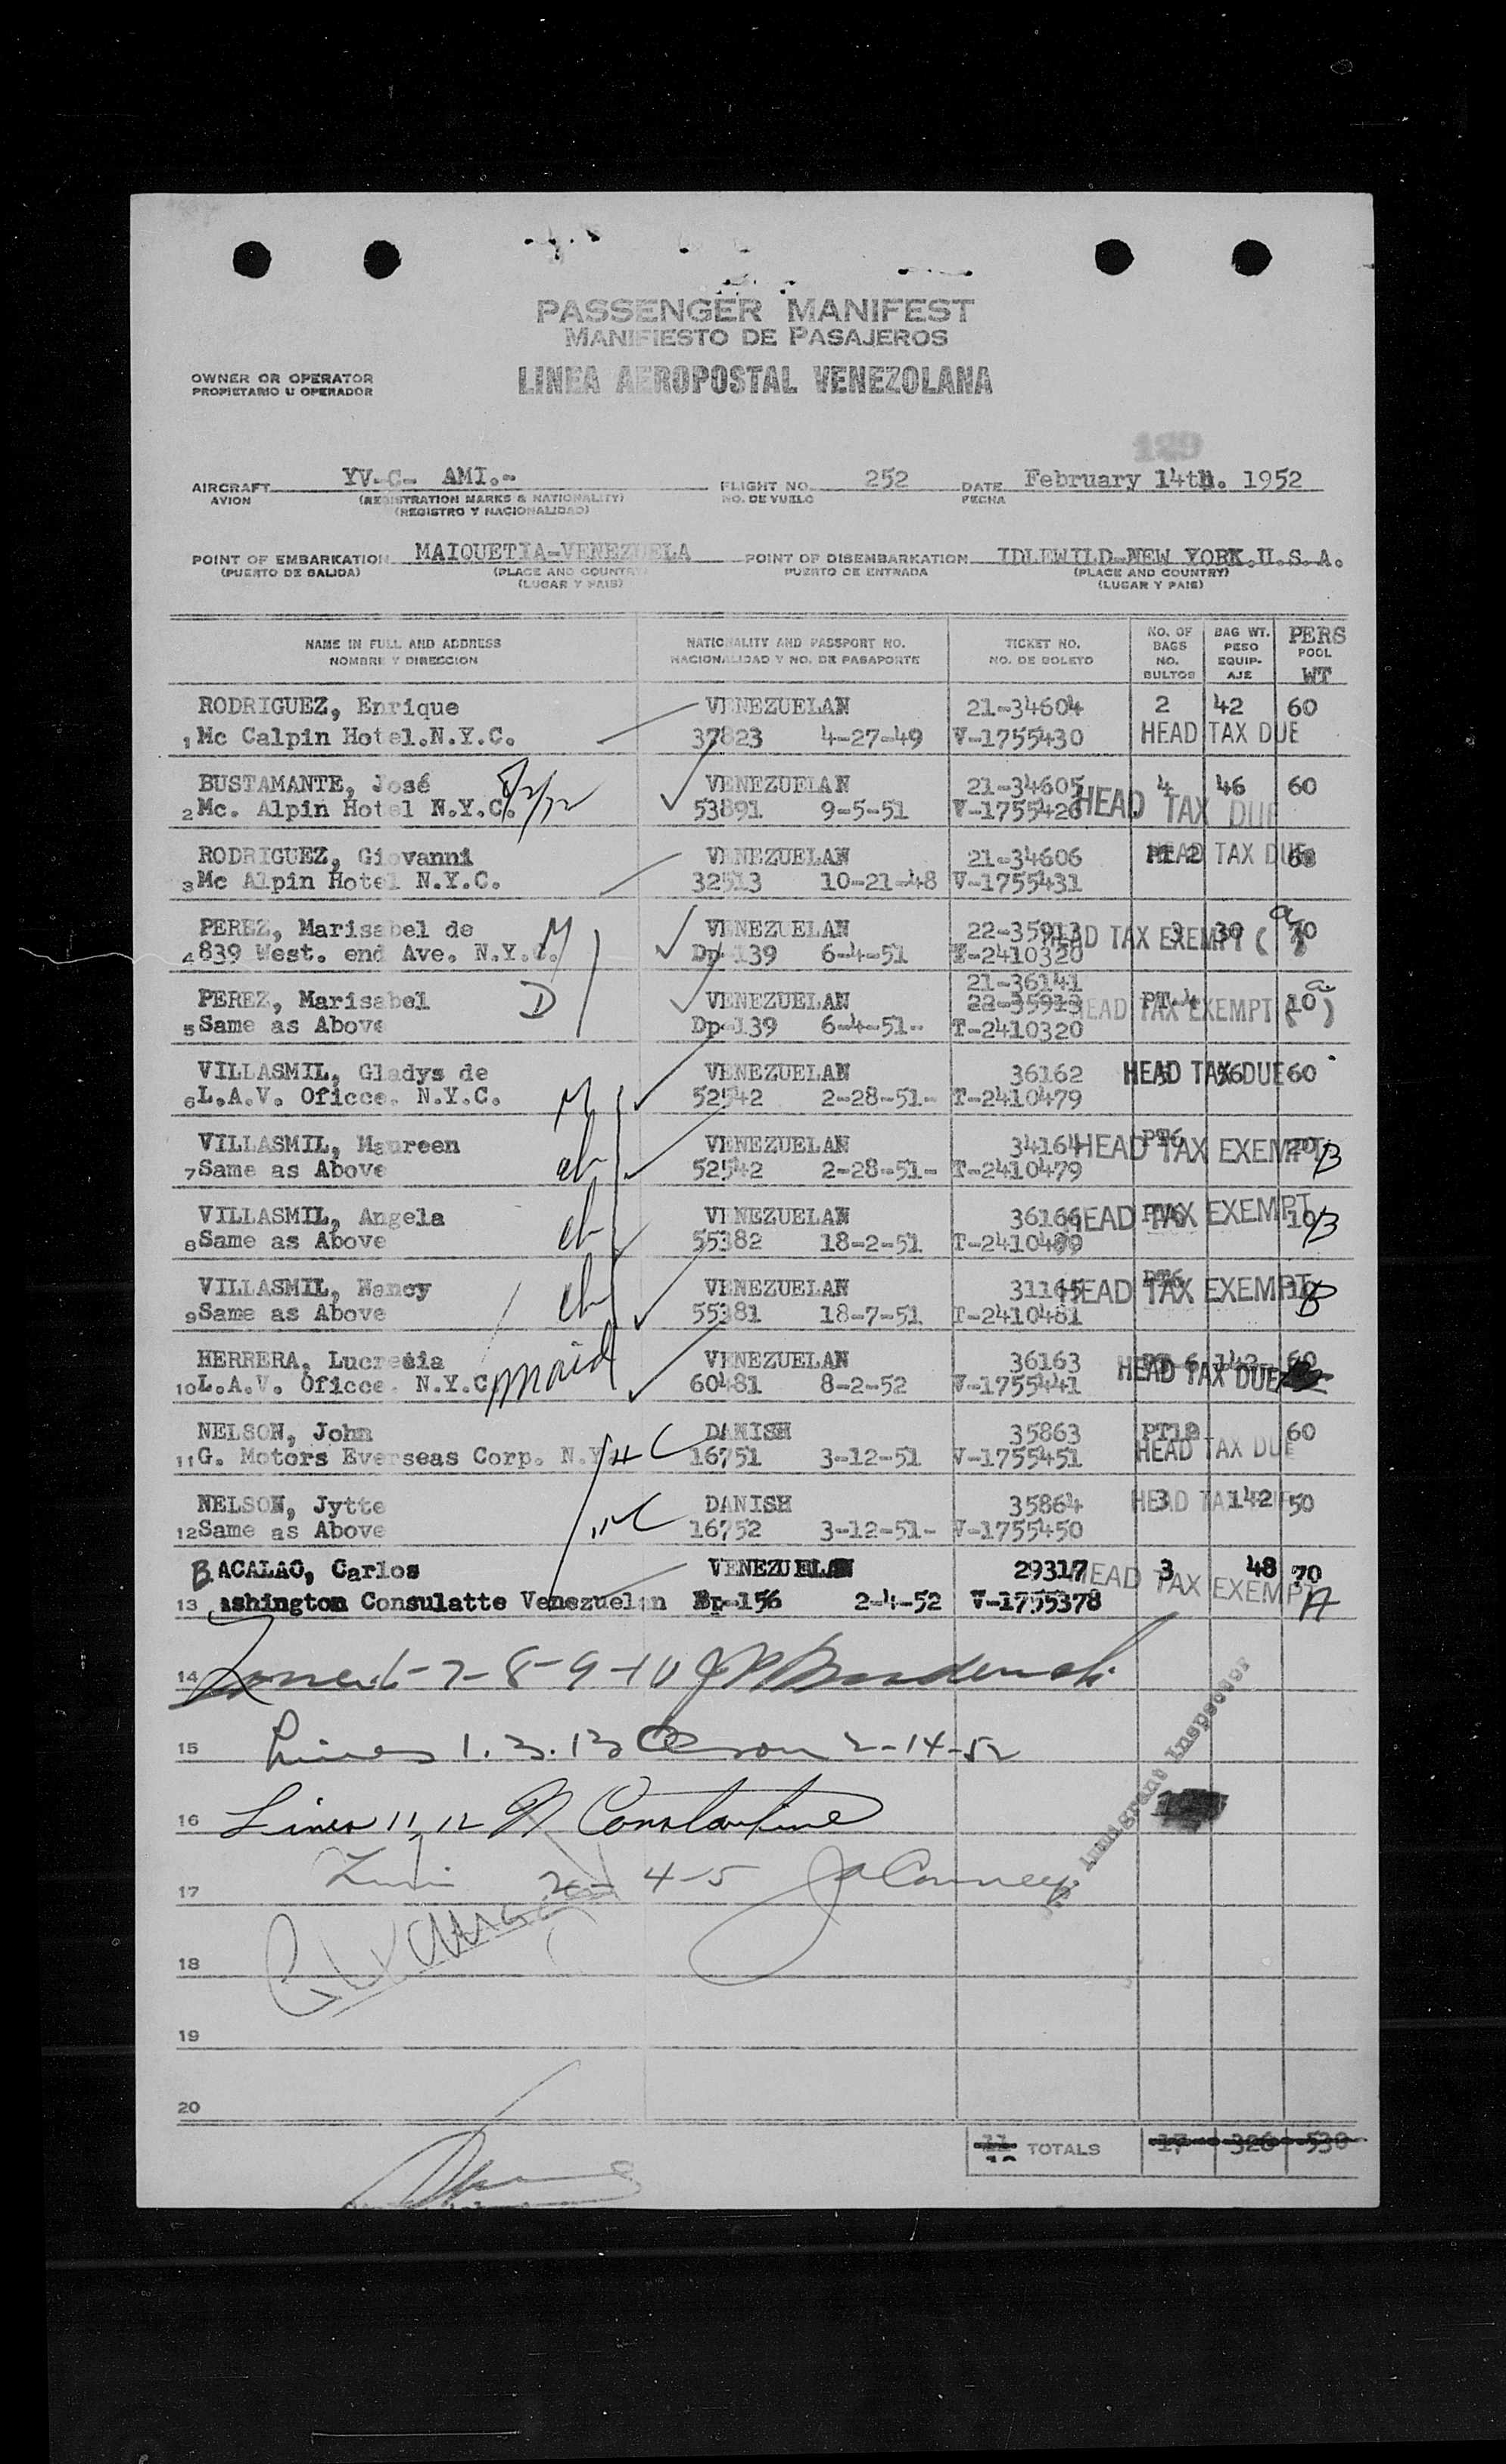 PASSENGER MANIFEST
MANIFIESTO DE PASAJEROS
OWNER OR OPERATOR LINEA AEROPOSTAL VENEZOLANA
PROPIETARIO U OPERADOR
AIRCRAFT YV-C- AMI.- FLIGHT NO. 252 DATE February 14th. 1952
AVION (REGISTRATION MARKS & NATIONALITY) NO. DE VUELO FECHA
(REGISTRO Y NACIONALIDAD)
POINT OF EMBARKATION MAIQUETIA-VENEZUELA POINT OF DISEMBARKATION IDLEWILD-NEW YORK.U.S.A.
(PUERTO DE SALIDA) (PLACE AND COUNTRY) PUERTO DE ENTRADA (PLACE AND COUNTRY)
(LUGAR Y PAIS) (LUGAR Y PAIS)
NAME IN FULL AND ADDRESS NATIONALITY AND PASSPORT NO. TICKET NO. NO. OF BAGS BAG WT. PERS
NOMBRE Y DIRECCION NACIONALIDAD Y NO. DE PASAPORTE NO. DE BOLETO NO. BULTOS PESO EQUIP-AJE POOL WT
RODRIGUEZ, Enrique VENEZUELAN 21-34604 2 42 60
1 Mc Calpin Hotel.N.Y.C. 37823 4-27-49 V-1755430 HEAD TAX DUE
BUSTAMANTE, José VENEZUELAN 21-34605 4 46 60
2 Mc. Alpin Hotel N.Y.C. 53891 9-5-51 V-1755426 HEAD TAX DUE
RODRIGUEZ, Giovanni VENEZUELAN 21-34606 HEAD TAX DUE
3 Mc Alpin Hotel N.Y.C. 32513 10-21-48 V-1755431
PEREZ, Marisabel de M VENEZUELAN 22-35913 3 30 70
4 839 West. end Ave. N.Y.C. Dp-139 6-4-51 T-2410320 HEAD TAX EXEMPT (a)
21-36141
PEREZ, Marisabel D VENEZUELAN 22-35913 PT-4 10
5 Same as Above Dp-139 6-4-51-- T-2410320 HEAD TAX EXEMPT (a)
VILLASMIL, Gladys de VENEZUELAN 36162 HEAD TAX DUE 60
6 L.A.V. Oficce. N.Y.C. M 52542 2-28-51- T-2410479
VILLASMIL, Maureen VENEZUELAN 34164 PT6 HEAD TAX EXEMPT 20 B
7 Same as Above ch 52542 2-28-51- T-2410479
VILLASMIL, Angela VENEZUELAN 36166 PT6 HEAD TAX EXEMPT 10 B
8 Same as Above ch 55382 18-2-51
VILLASMIL, Nancy VENEZUELAN 31165 PT6 HEAD TAX EXEMPT B
9 Same as Above ch 55381 18-7-51 T-2410481
HERRERA, Lucresia VENEZUELAN 36163 PT 6 142 60
10 L.A.V. Oficce. N.Y.C. maid 60481 8-2-52 V-1755441 HEAD TAX DUE
NELSON, John DANISH 35863 60
11 G. Motors Everseas Corp. N.Y. 16751 3-12-51 V-1755451 HEAD TAX DUE
NELSON, Jytte DANISH 35864 3 142 50 HEAD TAX DUE
12 Same as Above 16752 3-12-51- V-1755450
BACALAO, Carlos VENEZUELAN 29317 3 48 70
13 ashington Consulatte Venezuelan Dp-156 2-4-52 V-1755378 HEAD TAX EXEMPT A
14 6-7-8-9-10
15 Lines 1. 3. 13 2-14-52
16 Lines 11, 12 Constantine
17 2- 4-5
Immigrant Inspector
18
19
20
11 TOTALS 17 326 530